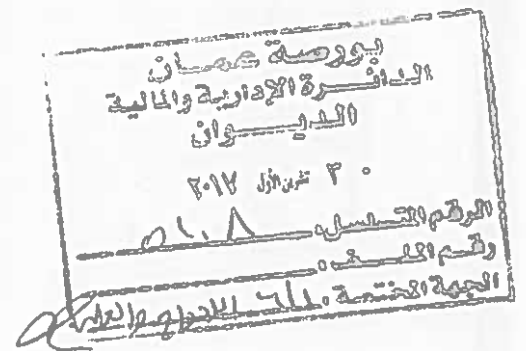 بورصة عمان
الدائرة الإدارية والمالية
الديوان
٣٠ تشرين الأول ٢٠١٧
الرقم المتسلسل: ٥١٠٨
رقم الملف:
الجهة المختصة: